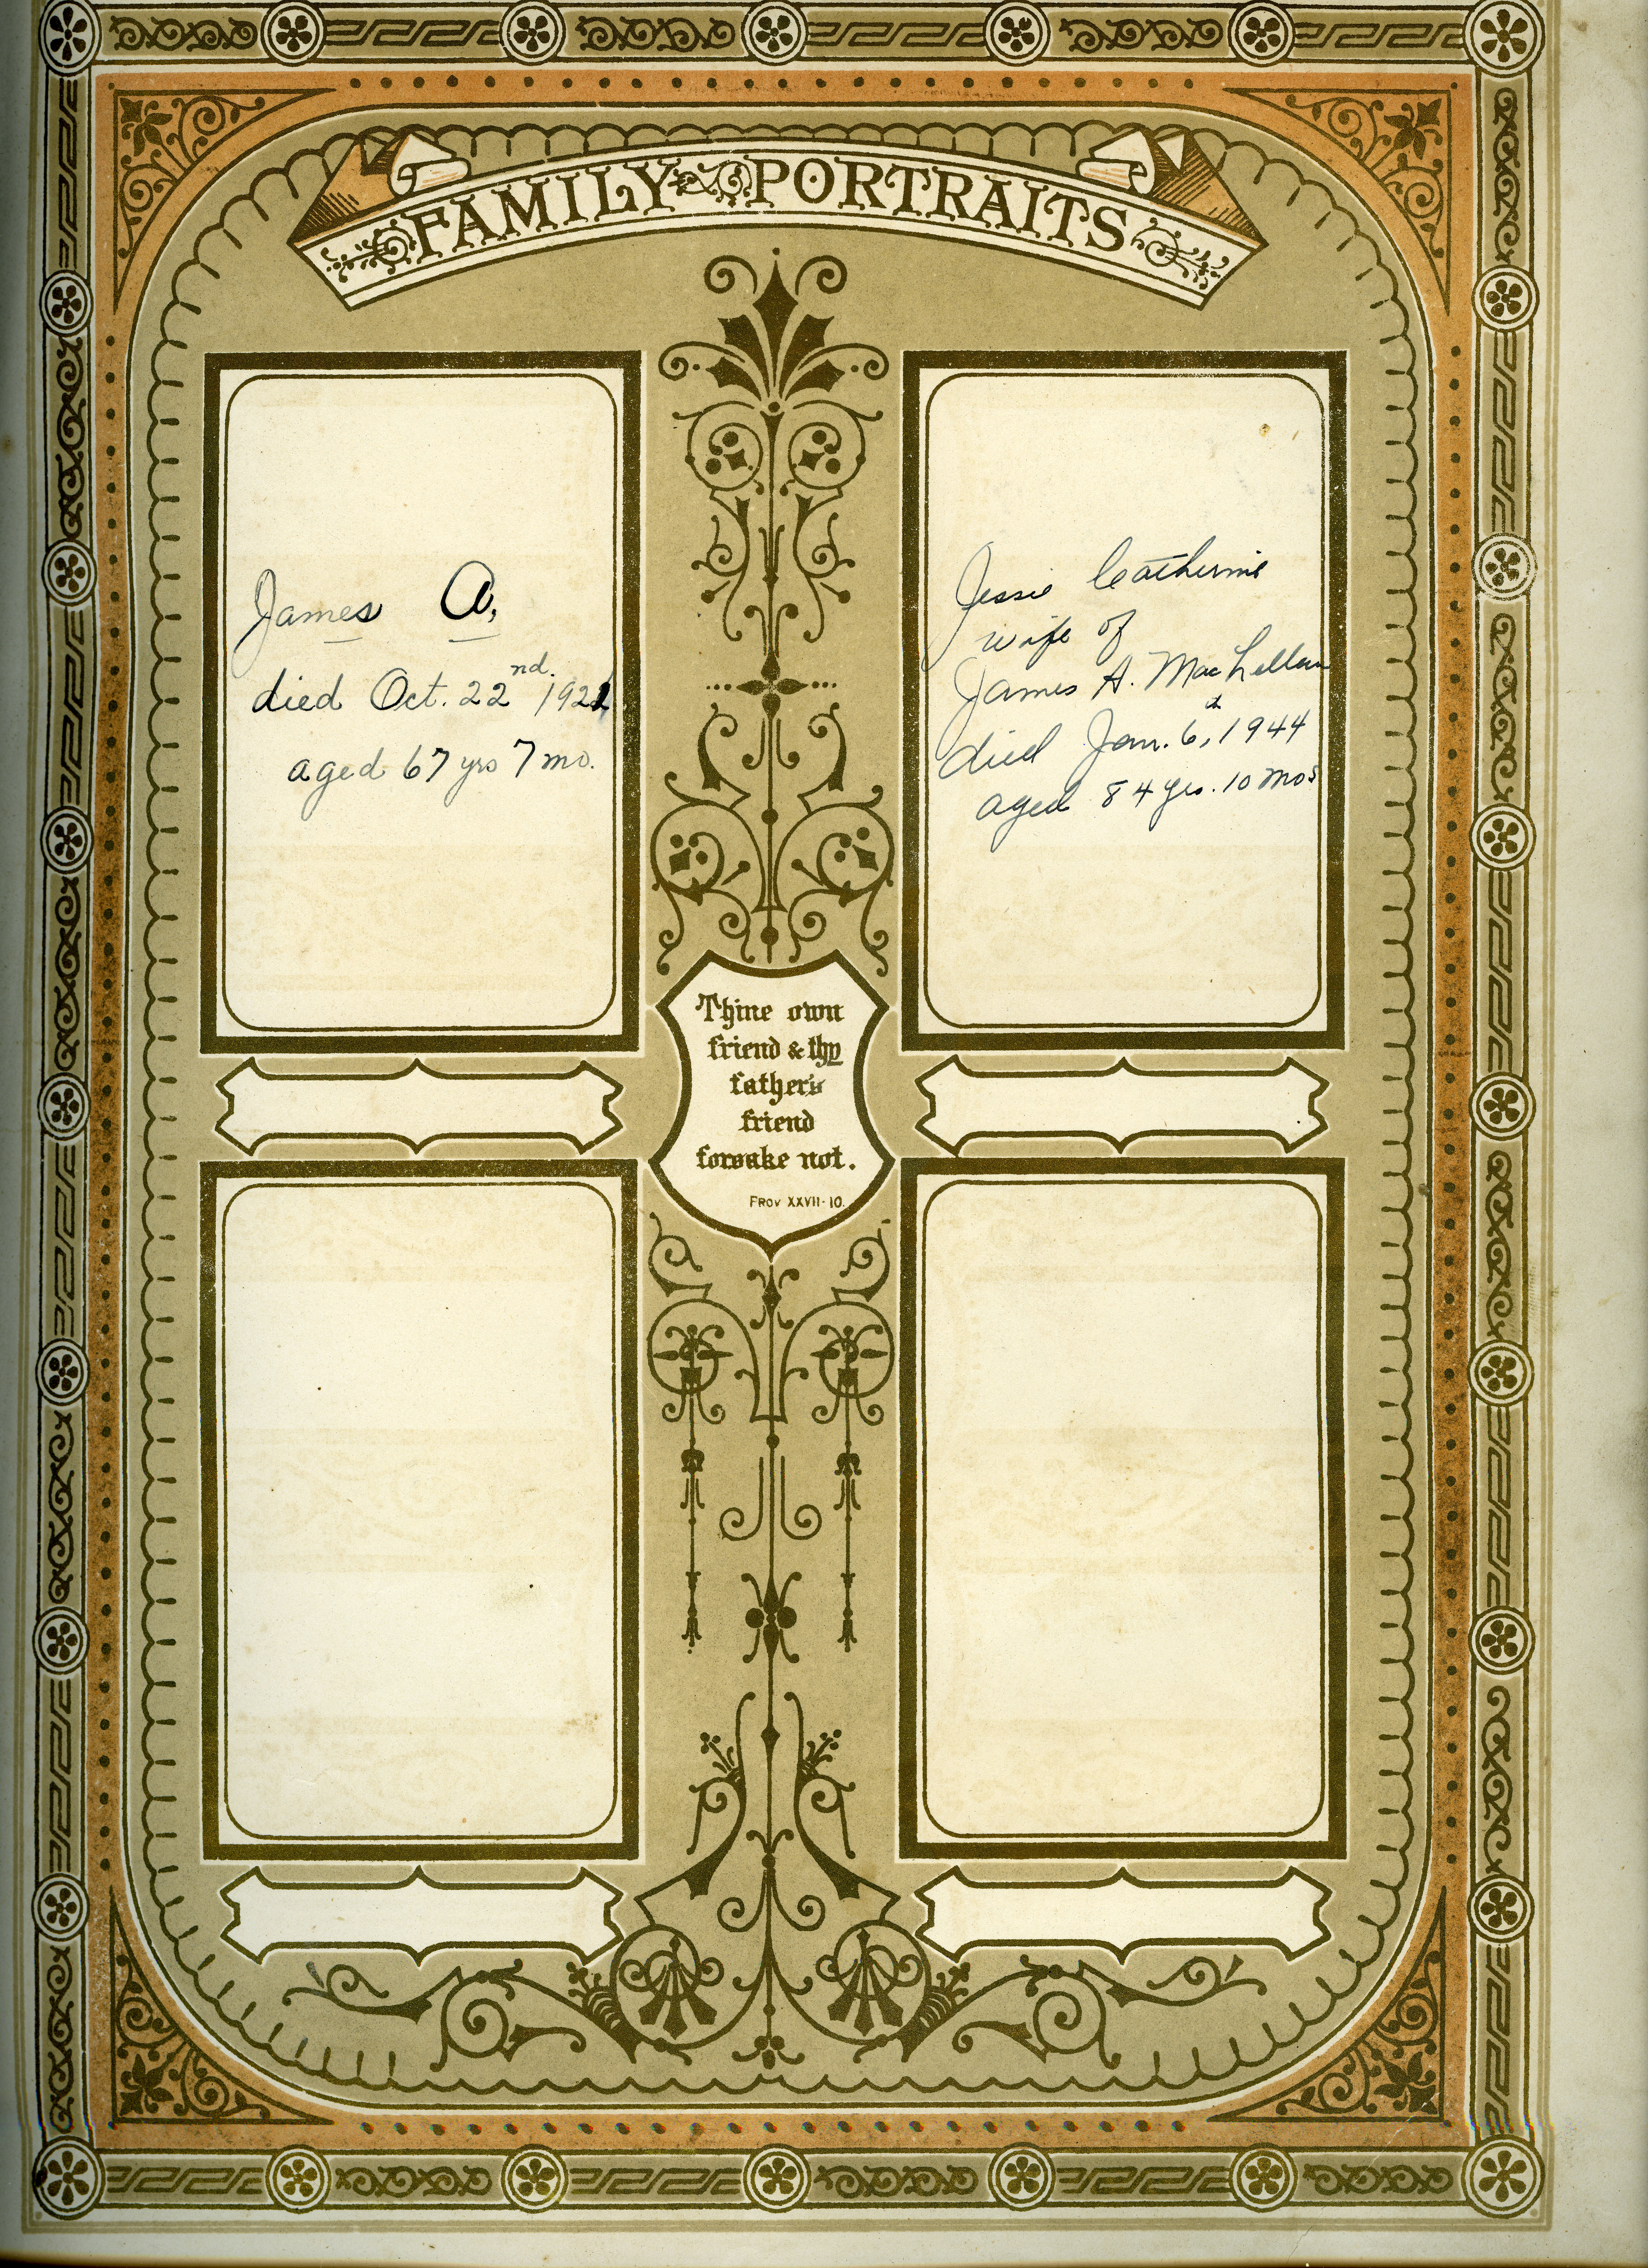 FAMILY PORTRAITS
James A.
died Oct. 22nd. 1921
aged 67 yrs 7 mo.
Jessie Catherine
wife of
James A. MacLellan
died Jan. 6th, 1944
aged 84 yrs. 10 mos
Thine own
friend & thy
father's
friend
forsake not.
PROV XXVII-10.